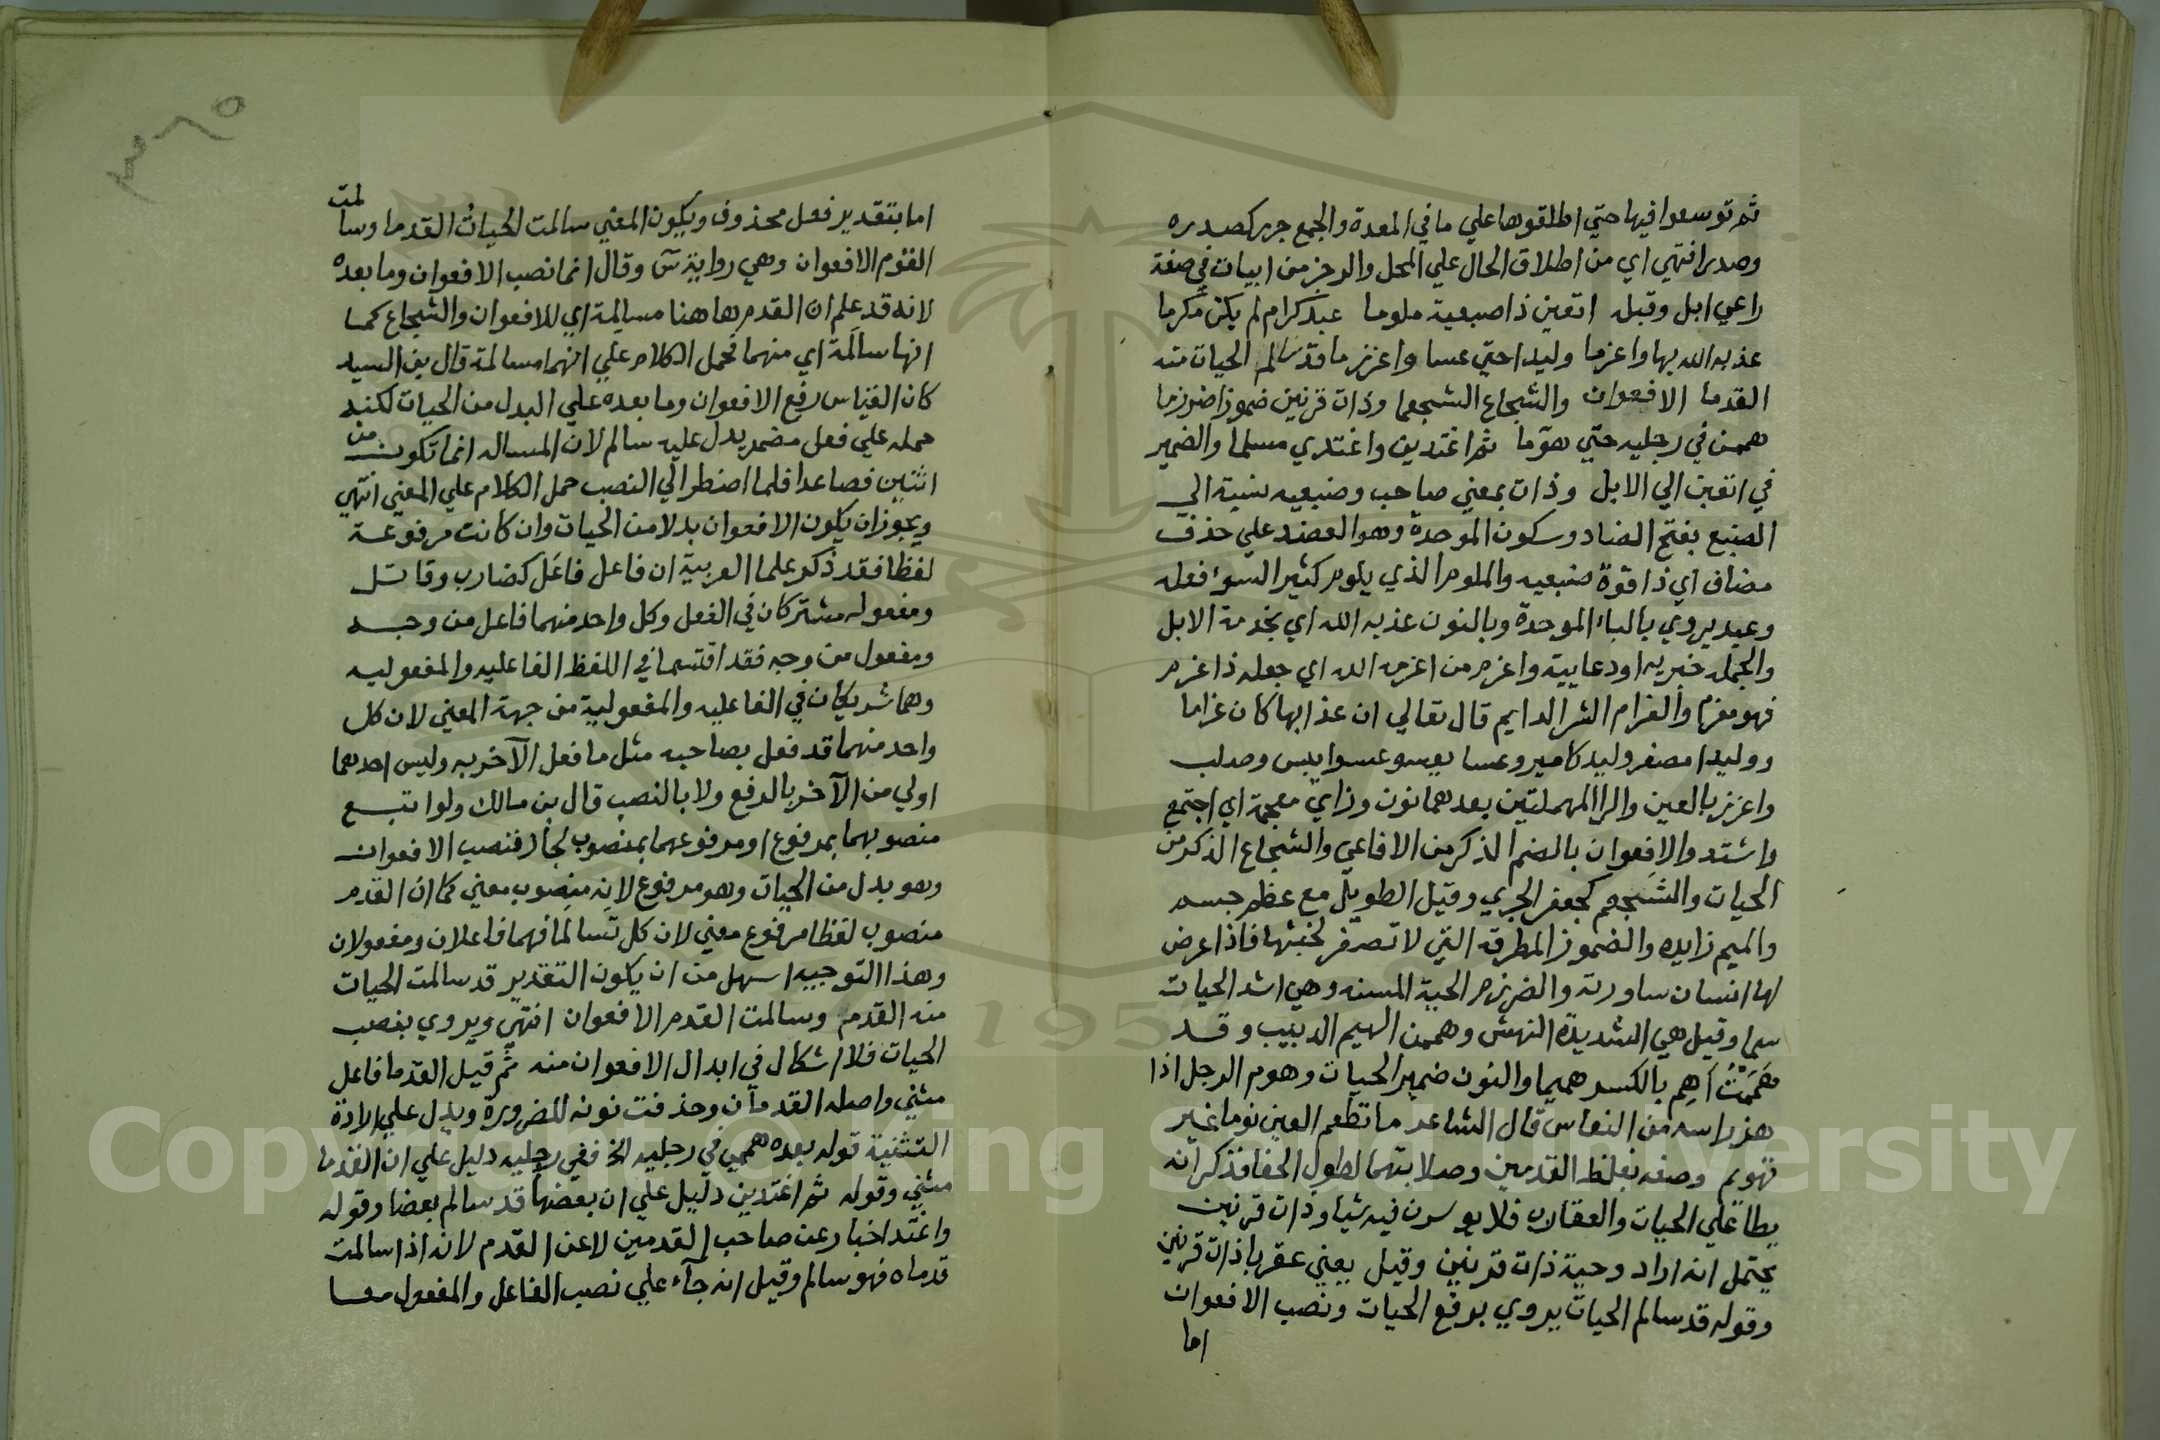 ثم توسعوا فيها حتي اطلقوها علي ما في المعدة والجمع جرر كصدره
وصدر انتهي اي من اطلاق الحال علي المحل والرجز من ابيات في صفة
راعي ابل وقبله اتعبن ذا ضبعية ملوما عبد كرام لم يكن مكرما
عذبه الله بها واغرما وليدا حتي عسا واعرنزما قد سالم الحيات منه
القدما الافعوان والشجاع الشجعما وذات قرنين ضموزا ضرزما
هممن في رجليه حتي هوما ثم اغتدين واغتدي مسلما والضمير
في اتعبن الي الابل وذات بمعني صاحب وضبعيه نسبة الي
الضبع بفتح الضاد وسكون الموحدة وهو العضد علي حذف
مضاف اي ذا قوة ضبعيه والملوم الذي يلوم كثير السوء فعله
وعبد يروي بالباء الموحدة وبالنون عذبه الله اي بخدمة الابل
والجمله خبريه او دعاييه واغرم من اغرمه الله اي جعله ذا غرم
فهو مغرم والغرام الشر الدايم قال تعالي ان عذابها كان غراما
ووليدا مصغر وليد كامير وعسا يعسو عسوا يبس وصلب
واعرنز بالعين والرا المهملتين بعدهما نون وزاي معجمة اي اجتمع
واشتد والافعوان بالضم الذكر من الافاعي والشجاع الذكر من
الحيات والشجعم كجعفر الجري وقيل الطويل مع عظم جسمه
والميم زايده والضموز المطرقه التي لا تصفر لخبثها فاذا عرض
لها انسان ساورته والضرزم الحية المسنه وهي اشد الحيات
سما وقيل هي الشديدة النهش وهممن الهميم الدبيب وقد
هممت اهم بالكسر هميما والنون ضمير الحيات وهوم الرجل اذا
هز راسه من النعاس قال الشاعر ما تطعم العين نوما غير
تهويم وصفه بغلظ القدمين وصلابتهما لطول الحفا فذكر انه
يطا علي الحيات والعقارب فلا يوسرن فيه شيا وذات قرنين
يحتمل انه اراد وحية ذات قرنين وقيل يعني عقربا ذات قرنين
وقوله قد سالم الحيات يروي برفع الحيات ونصب الافعوان
اما
اما بتقدير فعل محذوف ويكون المعني سالمت الحيات القدما وسالمت
القدم الافعوان وهي رواية س وقال انما نصب الافعوان وما بعده
لانه قد علم ان القدم هاهنا مسالمة اي للافعوان والشجاع كما
انها سالمة اي منهما فحمل الكلام علي انهما مسالمة قال بن السيد
كان القياس رفع الافعوان وما بعده علي البدل من الحيات لكنه
حمله علي فعل مضمر يدل عليه سالم لان المساله انما تكون من
اثنين فصاعدا فلما اضطر الي النصب حمل الكلام علي المعني انتهي
ويجوز ان يكون الافعوان بدلا من الحيات وان كانت مرفوعة
لفظا فقد ذكر علما العربية ان فاعل فاعل كضارب وقاتل
ومفعوله مشتركان في الفعل وكل واحد منهما فاعل من وجه
ومفعول من وجه فقد اقتسما في اللفظ الفاعليه والمفعوليه
وهما شريكان في الفاعليه والمفعولية من جهة المعني لان كل
واحد منهما قد فعل بصاحبه مثل ما فعل الآخر به وليس احدهما
اولي من الآخر بالرفع ولا بالنصب قال بن مالك ولو اتبع
منصوبهما بمرفوع او مرفوعهما بمنصوب لجاز فنصب الافعوان
وهو بدل من الحيات وهو مرفوع لانه منصوب معني كما ان القدم
منصوب لفظا مرفوع معني لان كل تسالما فهما فاعلان ومفعولان
وهذا التوجيه اسهل من ان يكون التقدير قد سالمت الحيات
منه القدم وسالمت القدم الافعوان انتهي ويروي بنصب
الحيات فلا اشكال في ابدال الافعوان منه ثم قيل القدما فاعل
مثني واصله القدمان وحذفت نونه للضرورة ويدل علي ارادة
التثنية قوله بعده هممن في رجليه الخ ففي رجليه دليل علي ان القدما
مثني وقوله ثم اغتدين دليل علي ان بعضها قد سالم بعضا وقوله
واغتد اخبار عن صاحب القدمين لا عن القدم لانه اذا سالمت
قدماه فهو سالم وقيل انه جآء علي نصب الفاعل والمفعول معا
Copyright © King Saud University
195